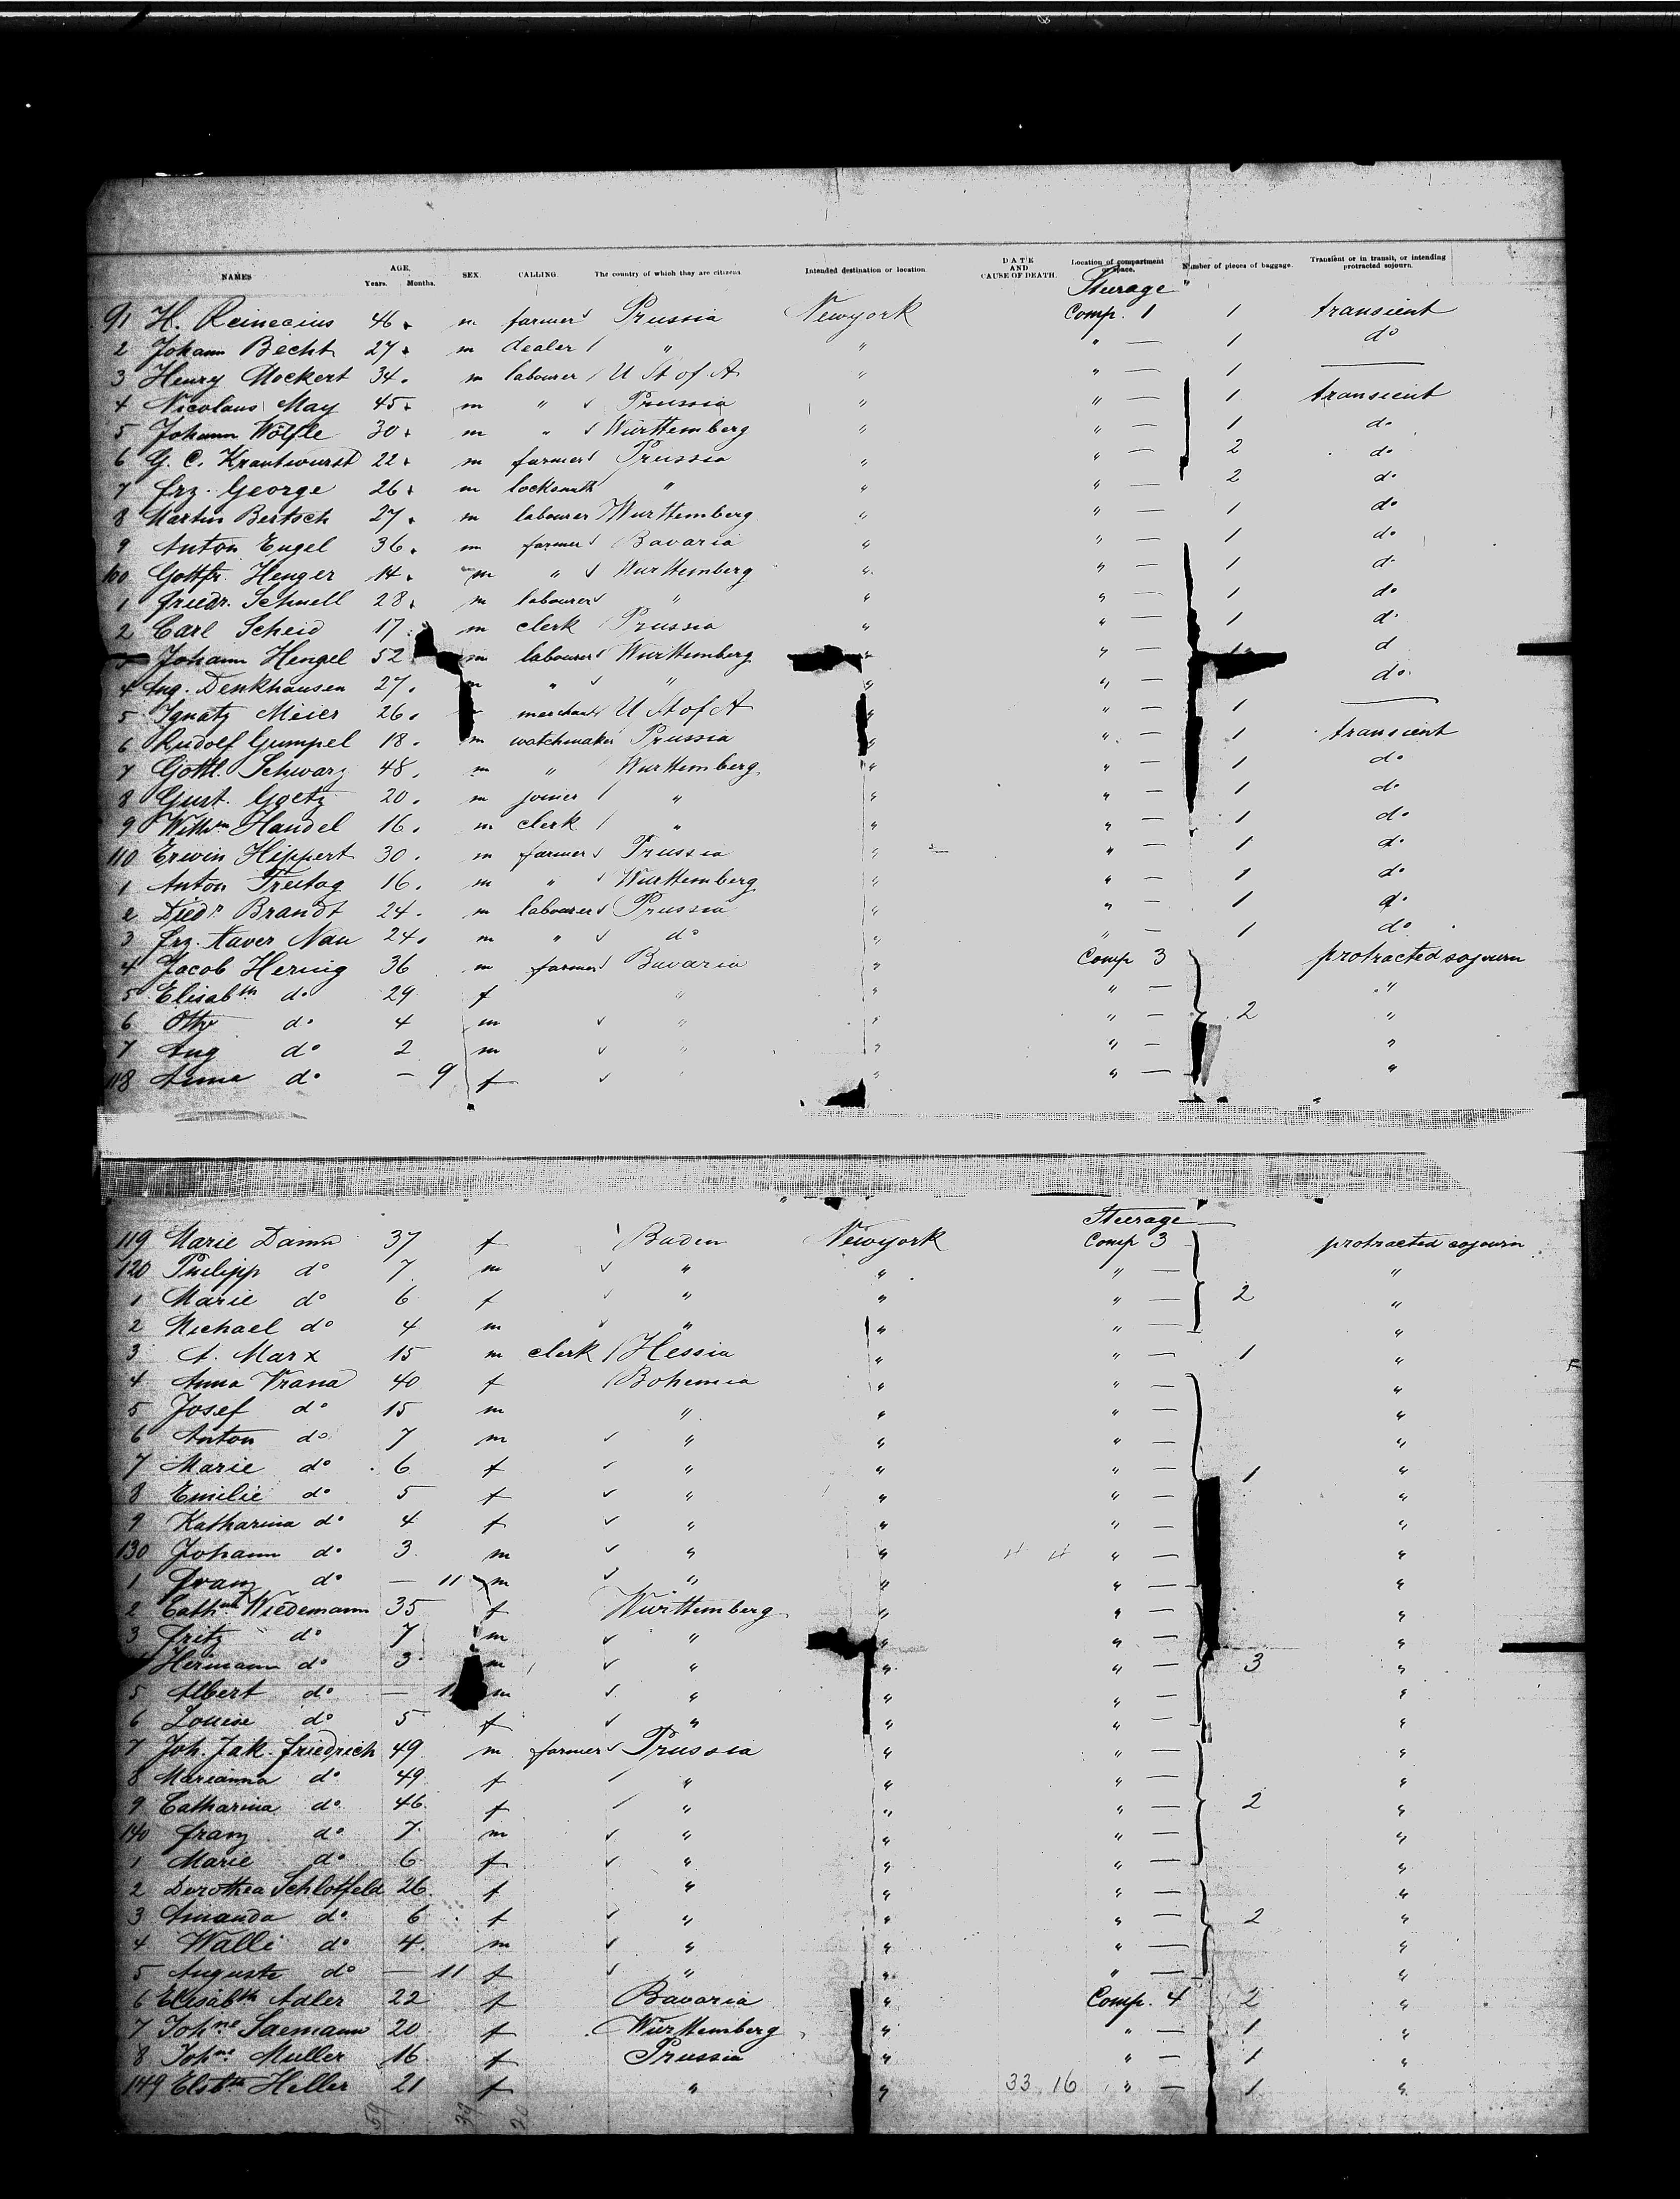 NAMES AGE. Years. Months. SEX. CALLING. The country of which they are citizens. Intended destination or location. DATE AND CAUSE OF DEATH. Location of compartment or space. Number of pieces of baggage. Transient or in transit, or intending protracted sojourn.
Steerage
91 H. Reinecius 46 m farmer Prussia Newyork Comp. 1 1 transient
2 Johann Becht 27 m dealer " " " — 1 do
3 Henry Mockert 34 m labourer U St of A " " — 1 —
4 Nicolaus May 45 m " Prussia " " — 1 transient
5 Johann Wölfle 30 m " Württemberg " " — 1 do
6 G. C. Krautwurst 22 m farmer Prussia " " — 2 do
7 Frz. George 26 m locksmith " " " — 2 do
8 Martin Bertsch 27 m labourer Wurttemberg " " — 1 do
9 Anton Engel 36 m farmer Bavaria " " — 1 do
100 Gottfr. Henger 14 m " Wurttemberg " " — 1 do
1 Friedr. Schnell 28 m labourer " " " — 1 do
2 Carl Scheid 17 m clerk Prussia " " — 1 do
Johann Hengel 52 m labourer Wurttemberg " " — d
4 Aug. Denkhausen 27 m " " " " — do
5 Ignatz Meier 26 merchant U St of A " " — 1 —
6 Rudolf Gumpel 18 m watchmaker Prussia " " — 1 transient
7 Gottl. Schwarz 48 m " Wurttemberg " " — 1 do
8 Gust. Goetz 20 m joiner " " " — 1 do
9 Wilhm Handel 16 m clerk " " " — 1 do
110 Erwin Hippert 30 m farmer Prussia " " — 1 do
1 Anton Freitag 16 m " Wurttemberg " " — 1 do
2 Diedr. Brandt 24 m labourer Prussia " " — 1 do
3 Frz. Xaver Nau 24 m " do " " — 1 do
4 Jacob Hering 36 m farmer Bavaria " Comp 3 protracted sojourn
5 Elisabth do 29 f " " " — "
6 Otto do 4 m " " " — 2 "
7 Aug do 2 m " " " — "
118 Anna do — 9 f " " " — "
Steerage
119 Marie Damm 37 f Baden Newyork Comp 3 protracted sojourn
120 Philipp do 7 m " " " — "
1 Marie do 6 f " " " — 2 "
2 Michael do 4 m " " " — "
3 A. Marx 15 m clerk Hessia " " — 1 "
4 Anna Vrana 40 f Bohemia " " — "
5 Josef do 15 m " " " — "
6 Anton do 7 m " " " — "
7 Marie do 6 f " " " — 1 "
8 Emilie do 5 f " " " — "
9 Katharina do 4 f " " " — "
130 Johann do 3 m " " " — "
1 Franz do — 11 m " " " — "
2 Cathna Wiedemann 35 f Württemberg " " — "
3 Fritz do 7 m " " " — "
Hermann do 3 m " " " — 3 "
5 Albert do — m " " " — "
6 Louise do 5 f " " " — "
7 Joh. Jak. Friedrich 49 m farmer Prussia " " — "
8 Marianna do 49 f " " " — "
9 Catharina do 46 f " " " — 2 "
140 Franz do 7 m " " " — "
1 Marie do 6 f " " " — "
2 Dorothea Schlotfeld 26 f " " " — "
3 Amanda do 6 f " " " — 2 "
4 Walli do 4 m " " " — "
5 Auguste do — 11 f " " " — "
6 Elisabth Adler 22 f Bavaria " Comp. 4 2 "
7 Johne Saemann 20 f Wurttemberg " " — 1 "
8 Johne Muller 16 f Prussia " " — 1 "
149 Elsbth Heller 21 f " " 33 16 " — 1 "
59 39 20